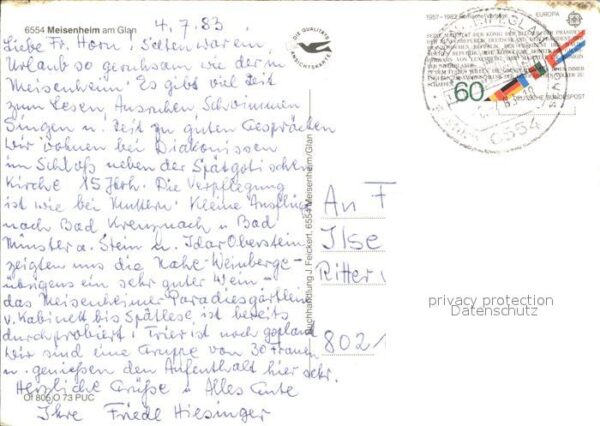 6554 Meisenheim am Glan
4.7.83
Liebe Fr. Horn! Selten war ein
Urlaub so geruhsam wie der in
Meisenheim. Es gibt viel Zeit
zum Lesen, Ausruhen Schwimmen
Singen u. Zeit zu guten Gesprächen
Wir wohnen bei Diakonissen
im Schloß neben der Spätgotischen
Kirche 15 Jhrh. Die Verpflegung
ist wie bei Muttern. Kleine Ausflüge
nach Bad Kreuznach u Bad
Münster a. Stein u. Idar Oberstein
zeigten uns die Nahe-Weinberge-
übrigens ein sehr guter
das Meisenheimer Paradiesgärtlein
v. Kabinett bis Spätlese ist bereits
durchprobiert. Trier ist noch geplant
Wir sind eine Gruppe von 30 Frauen
u. genießen den Aufenthalt hier sehr.
Herzliche Grüße u Alles Gute
Ihre Friede Hiesinger
Of 805 O 73 PUC
DIE QUALITÄTS
ANSICHTSKARTE
Buchhandlung J. Feickert, 6554 Meisenheim/Glan
EUROPA
60
DEUTSCHE BUNDESPOST
6554
An F
Ilse
Ritter
802
privacy protection
Datenschutz